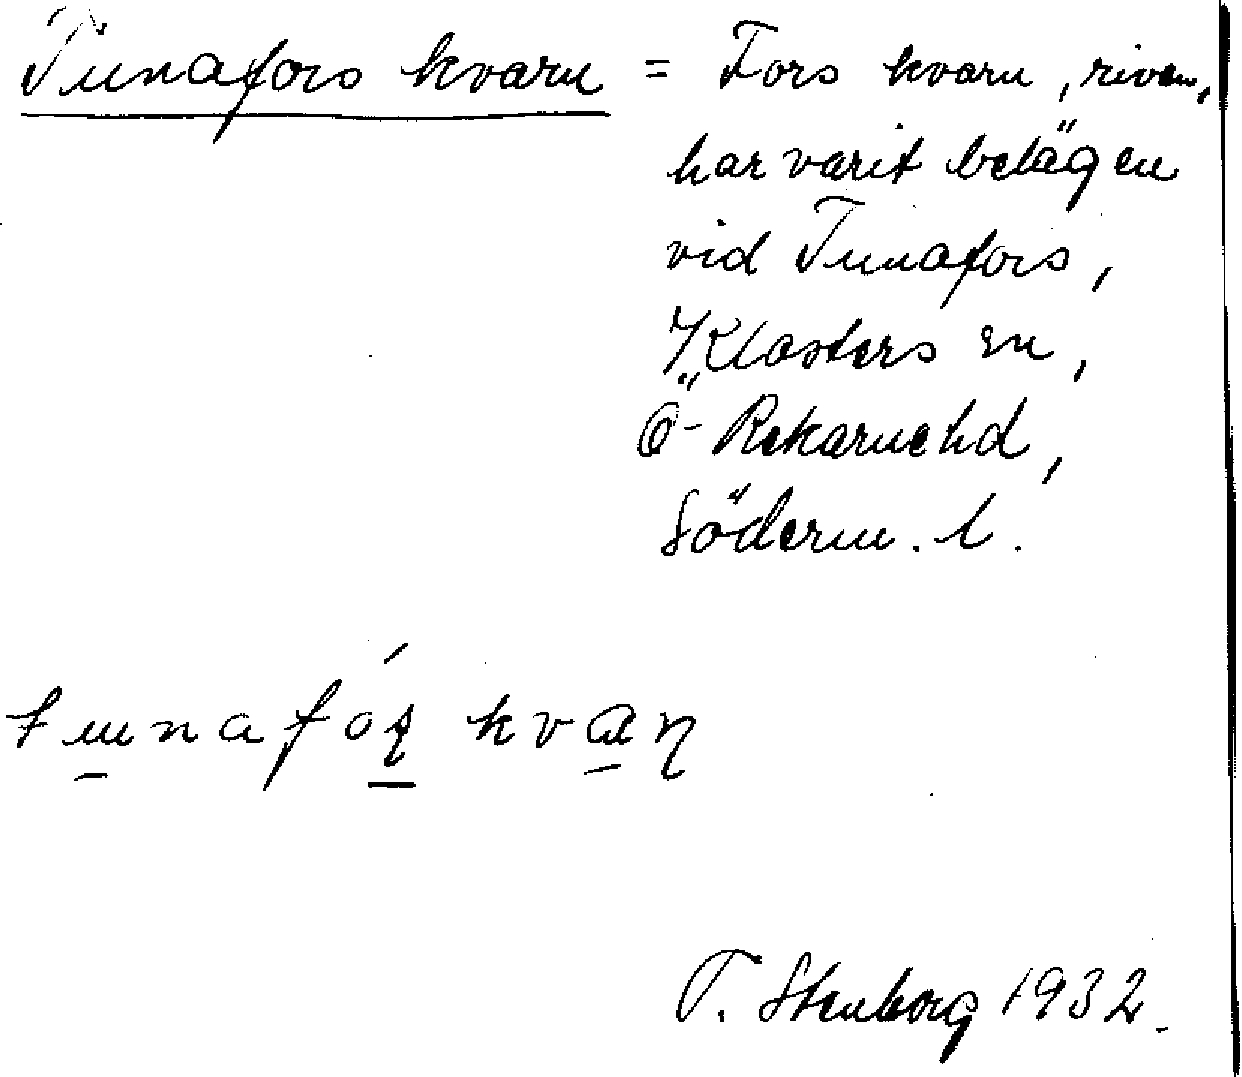 Tunafors kvarn = Fors kvarn, riven,
har varit belägen
vid Tunafors,
Klosters sn,
Ö-Rekarne hd,
Söderm. l.
kvaɳ
T. Stenborg 1932.